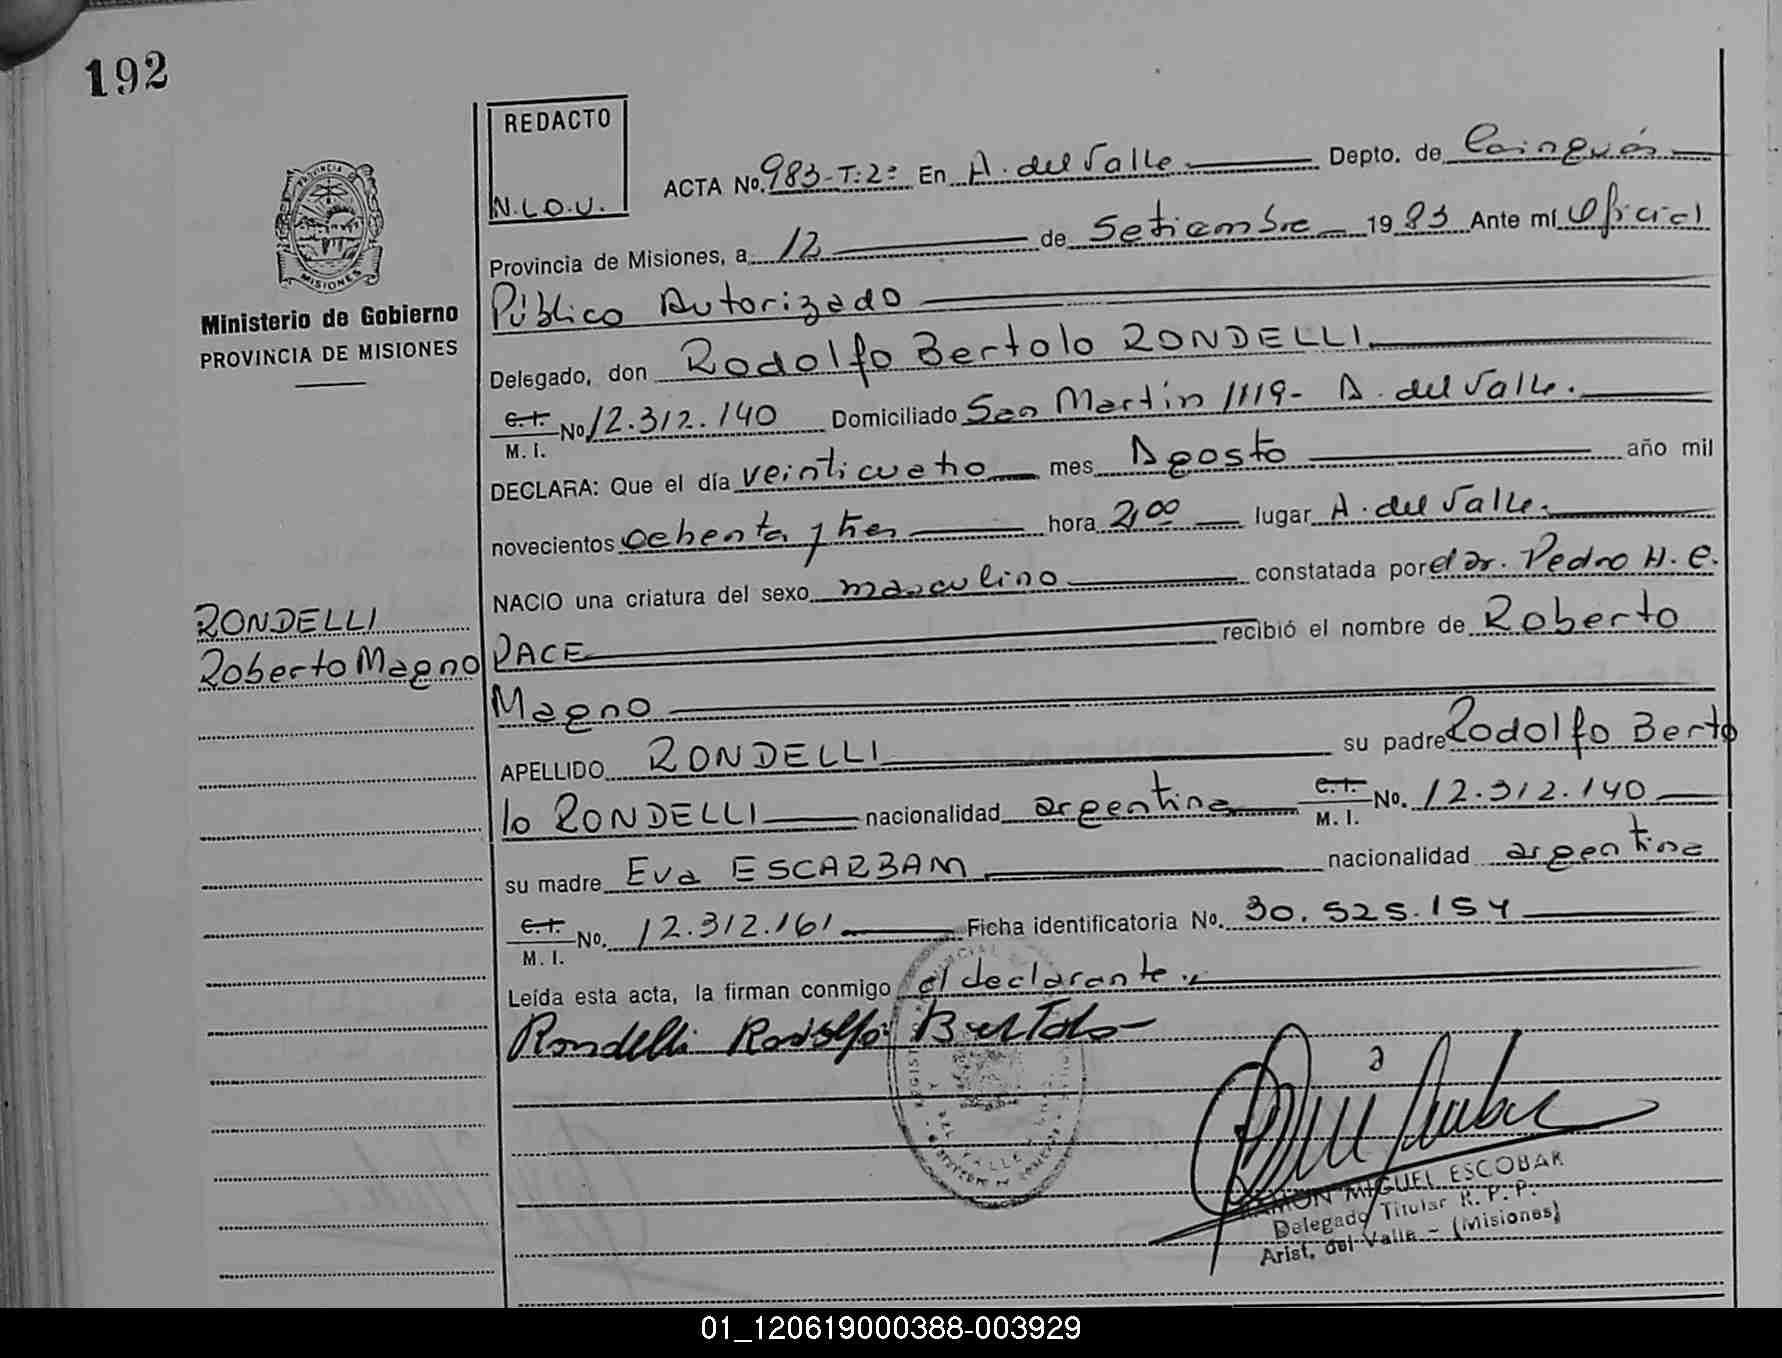 192
REDACTO
N.L.O.U.
PROVINCIA DE
MISIONES
Ministerio de Gobierno
PROVINCIA DE MISIONES
ACTA No. 983-T:2º En A. del Valle Depto. de Cainguás
Provincia de Misiones, a 12 de Setiembre 1983 Ante mí Oficial
Público Autorizado
Delegado, don Rodolfo Bertolo RONDELLI
C.I. M.I. No 12.312.140 Domiciliado San Martín 1119- A. del Valle.
DECLARA: Que el día veinticuatro mes Agosto año mil
novecientos ochenta y tres hora 21,00 lugar A. del Valle.
NACIO una criatura del sexo masculino constatada por el dr. Pedro H. C.
PACE recibió el nombre de Roberto
Magno
RONDELLI
Roberto Magno
APELLIDO RONDELLI su padre Rodolfo Berto
lo RONDELLI nacionalidad argentina C.I. M.I. No. 12.312.140
su madre Eva ESCARBAM nacionalidad argentina
C.I. M.I. No. 12.312.161 Ficha identificatoria No. 30.525.154
Leída esta acta, la firman conmigo el declarante.
Rondelli Rodolfo Bertolo
RAMON MIGUEL ESCOBAR
Delegado Titular R. P. P.
Arist. del Valle - (Misiones)
01_120619000388-003929